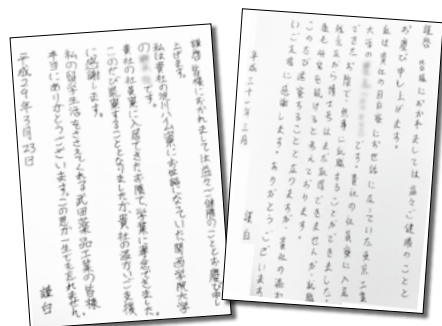 謹啓 皆様におかれましては益々ご健勝のこととお慶び申し
上げます。
私は貴社の渋川ハイム寮にお世話になっていた関西学院大学
の
です。
貴社の社員寮に入居できたお陰で、学業に専念できました。
このたび退寮することとなりましたが、貴社の温かいご支援
に感謝します。
私の留学生活をささえてくれる武田薬品工業の皆様
本当にありがとうございます。この恩が一生でも忘れません。
謹白
平成29年3月23日
謹啓 皆様におかれましては益々ご健勝のことと
お慶び申し上げます。
私は貴社の目白寮にお世話になっていた東京工業
大学の
です。貴社の社員寮に入居
できたお陰で、無事に
することができました。
残念ながら博士号はまだ取得できませんが、
後も研究を続けると考えております。
このたび退寮することと成りますが、貴社の温か
いご支援に感謝します。ありがとうございます
謹白
平成二十一年三月